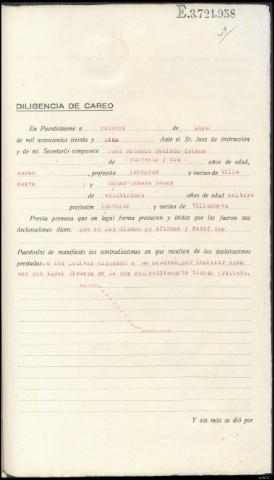 E.3.721.958
49
DILIGENCIA DE CAREO
En Puentoteame a catorce de Mayo
de mil novecientos treinta y Ante el Sr. Juez de instrucción
y de mi Secretario comparece Jose Antonio Cabana
de cuarenta y dos años de edad,
casado , profesión labrador y vecino de Villa
nueva ; y Cabana
de veinticinco años de edad soltero
profesión labrador y vecino de Villanueva
Previa promesa que en legal forma prestaron y leídas que les fueron sus
declaraciones dicen: que en las mismas se afirman y ratifican
Puestoles de manifiesto las contradicciones en que resulten de las declaraciones
prestadas no les pudo a un acuerdo, por insistir cada
uno con igual firmeza en lo que respectivamente tienen prestado.
Y sin más se dió por